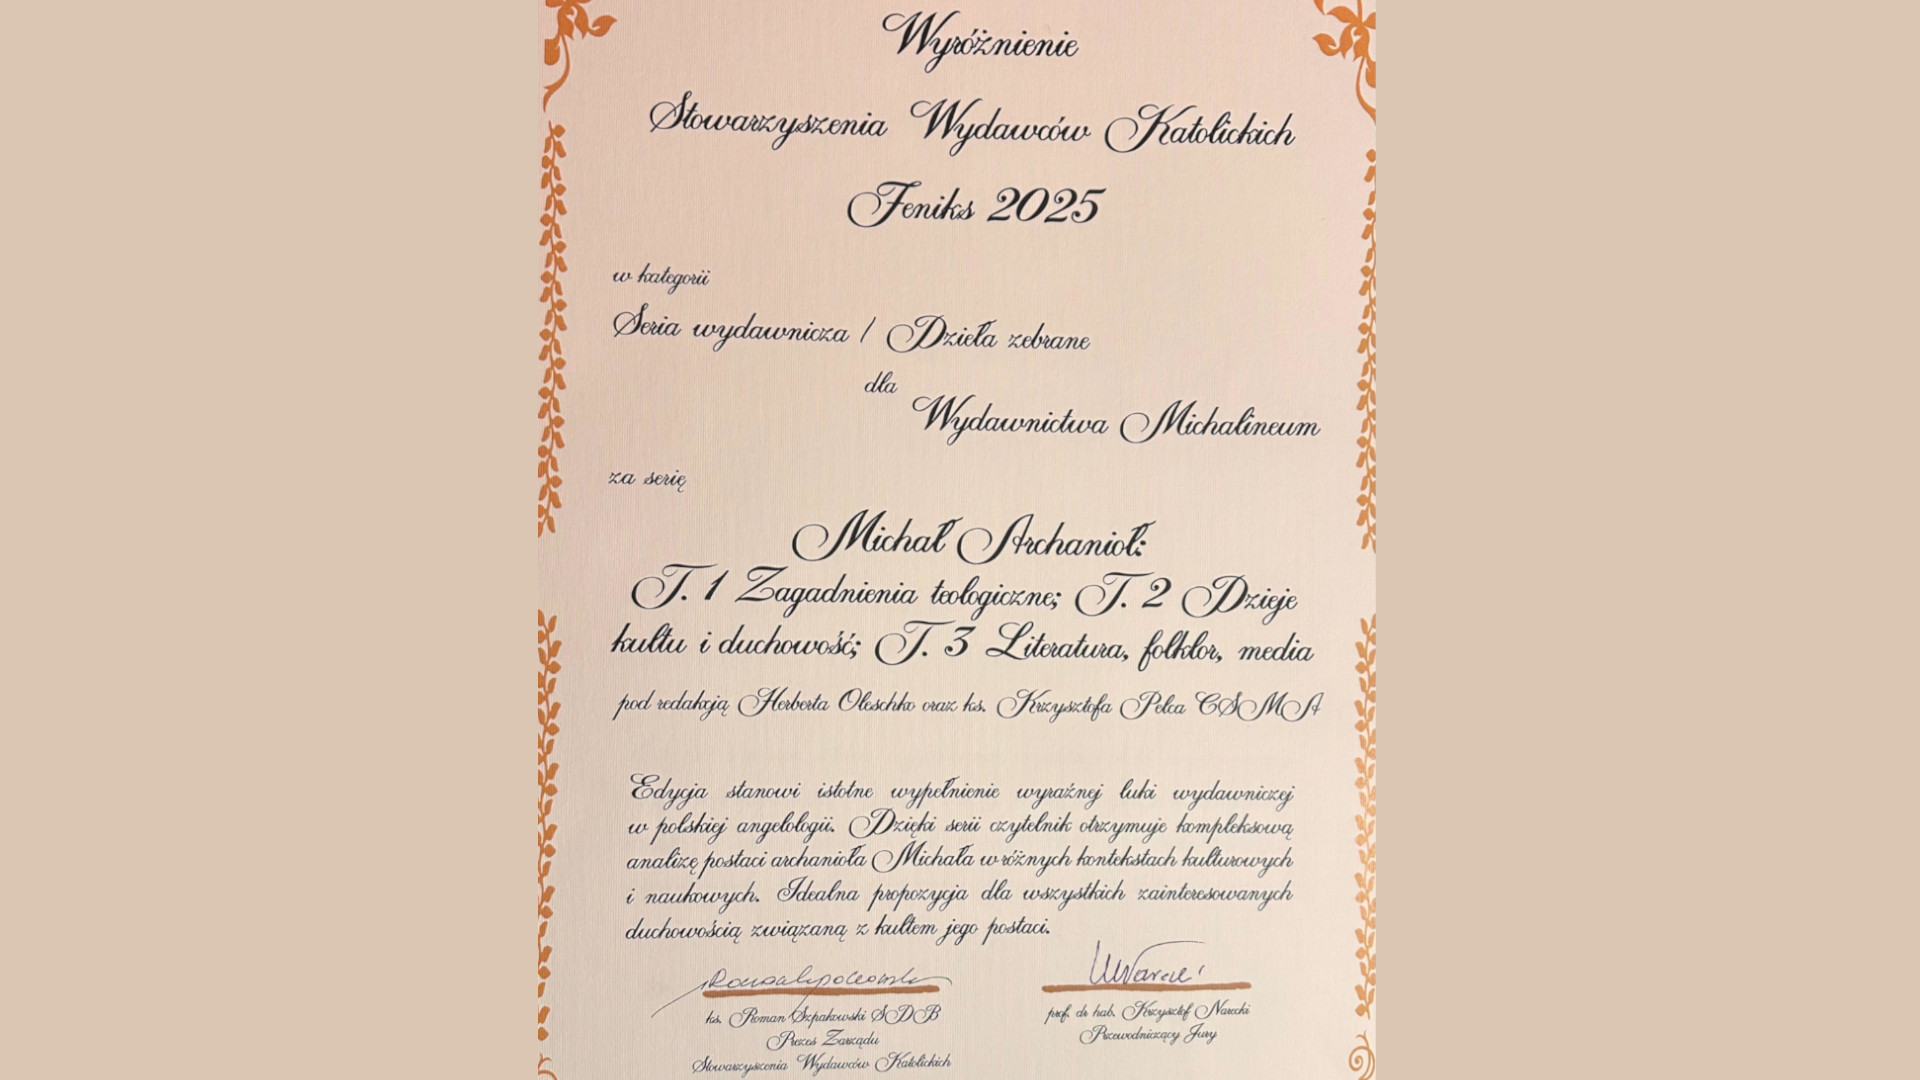 Wyróżnienie
Stowarzyszenia Wydawców Katolickich
Feniks 2025
w kategorii
Seria wydawnicza / Dzieła zebrane
dla
Wydawnictwa Michalineum
za serię
Michał Archanioł:
T. 1 Zagadnienia teologiczne; T. 2 Dzieje
kultu i duchowość; T. 3 Literatura, folklor, media
pod redakcją Herberta Oleschko oraz ks. Krzysztofa Pelca CSMA
Edycja stanowi istotne wypełnienie wyraźnej luki wydawniczej
w polskiej angelologii. Dzięki serii czytelnik otrzymuje kompleksową
analizę postaci archanioła Michała w różnych kontekstach kulturowych
i naukowych. Idealna propozycja dla wszystkich zainteresowanych
duchowością związaną z kultem jego postaci.
ks. Roman Szpakowski SDB
Prezes Zarządu
Stowarzyszenia Wydawców Katolickich
prof. dr hab. Krzysztof Narecki
Przewodniczący Jury